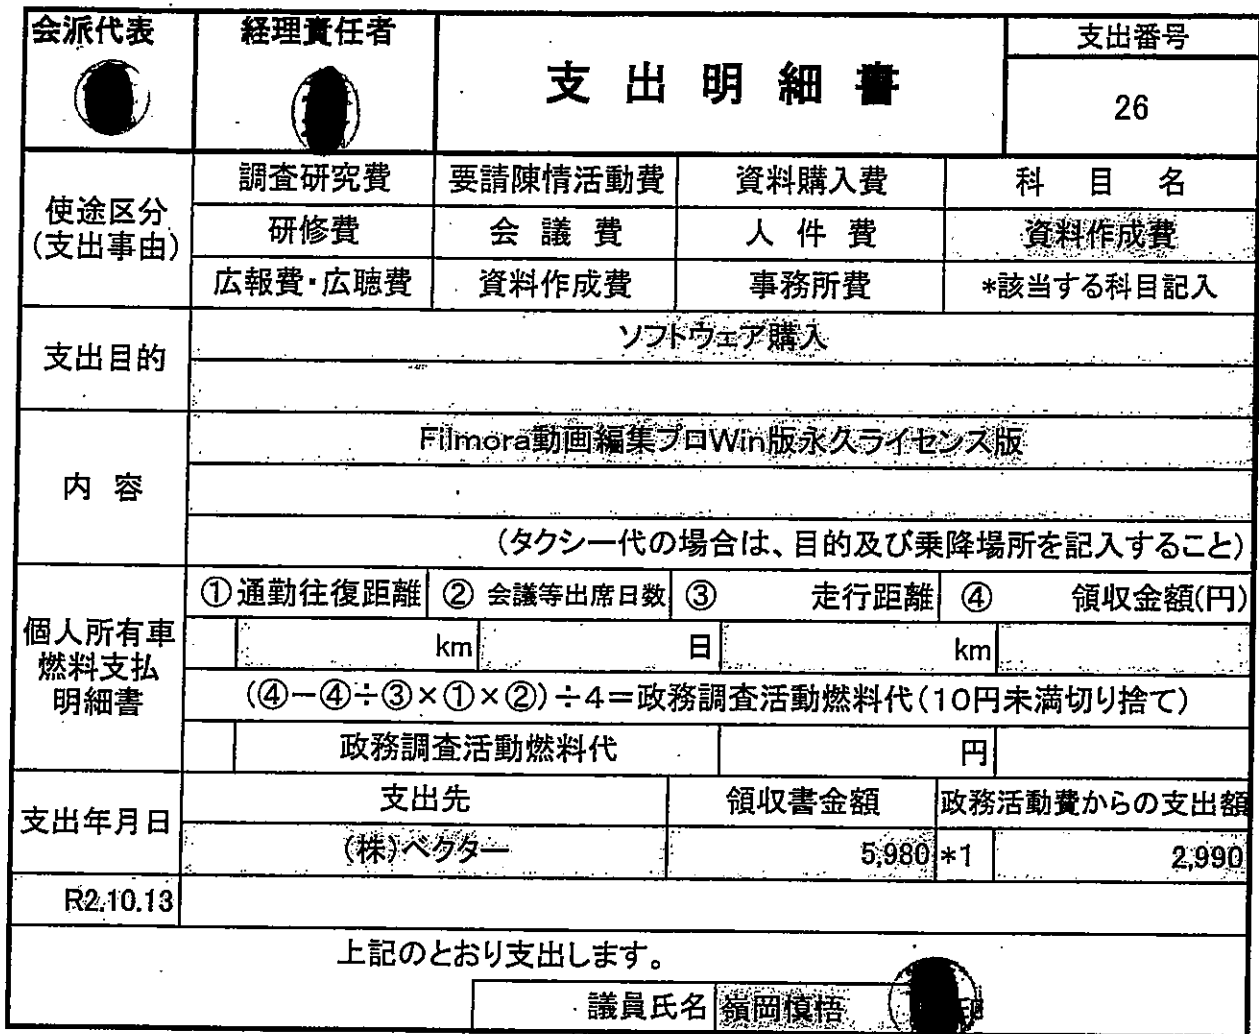 会派代表
経理責任者
支出明細書
支出番号
26
使途区分
(支出事由)
調査研究費 要請陳情活動費 資料購入費 科目名
研修費 会議費 人件費 資料作成費
広報費・広聴費 資料作成費 事務所費 *該当する科目記入
支出目的
ソフトウェア購入
内容
Filmora動画編集プロWin版永久ライセンス版
(タクシー代の場合は、目的及び乗降場所を記入すること)
個人所有車
燃料支払
明細書
①通勤往復距離 ② 会議等出席日数 ③ 走行距離 ④ 領収金額(円)
km 日 km
(④-④÷③×①×②)÷4=政務調査活動燃料代(10円未満切り捨て)
政務調査活動燃料代 円
支出年月日
支出先 領収書金額 政務活動費からの支出額
(株)ベクター 5,980 *1 2,990
R2.10.13
上記のとおり支出します。
議員氏名 嶺岡慎悟